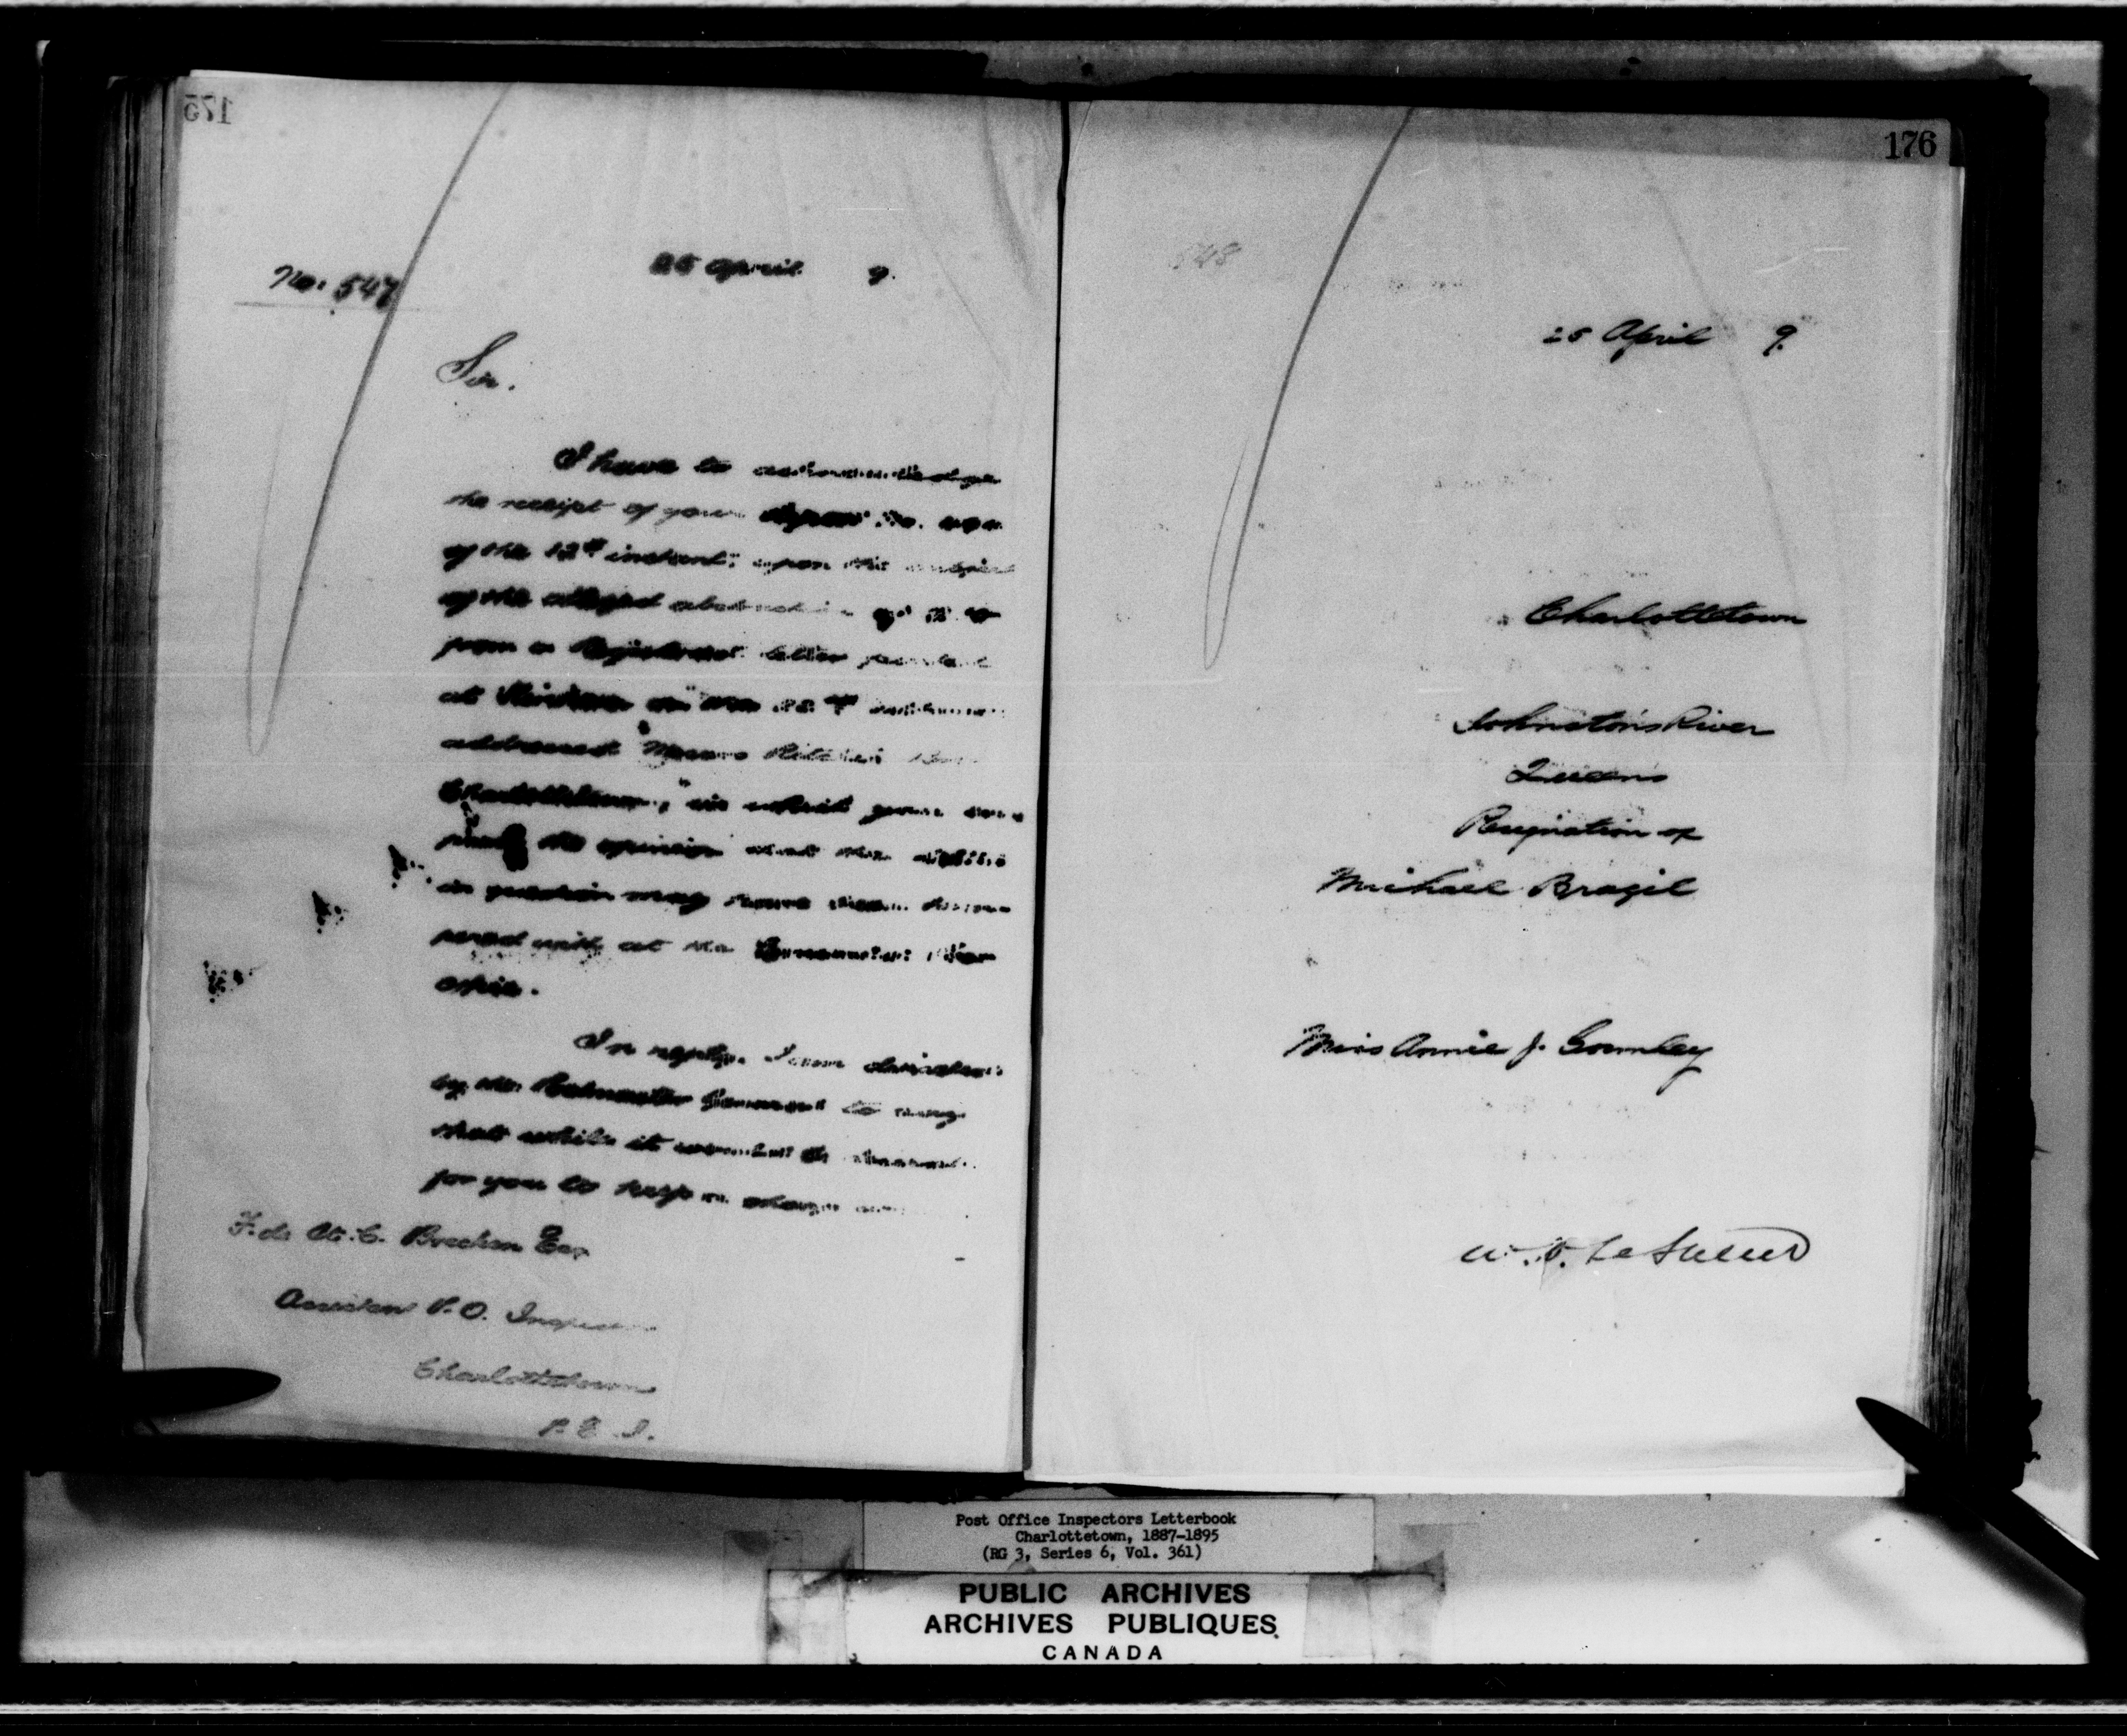 175
No. 547
25 April 9.
Sir.
I have to acknowledge
the receipt of your Report No.
of the 12th instant, upon the subject
of the alleged abstraction of
from a Registered letter posted
at on the
addressed "Messrs Bros
Charlottetown," in which you
the opinion that the
in question may have been
with at the
office.
In reply, I am desired
by the Postmaster General to say
that while it would be
for you to keep a
F. de St. C. Brecken Esq
Assistant P.O. Inspector
Charlottetown
P. E. I.
176
548
25 April 9.
Charlottetown
Johnston's River
Queens
Resignation of
Michael Brazil
Miss Annie J. Gormley
W. D. LeSueur
Post Office Inspectors Letterbook
Charlottetown, 1887-1895
(RG 3, Series 6, Vol. 361)
PUBLIC ARCHIVES
ARCHIVES PUBLIQUES
CANADA